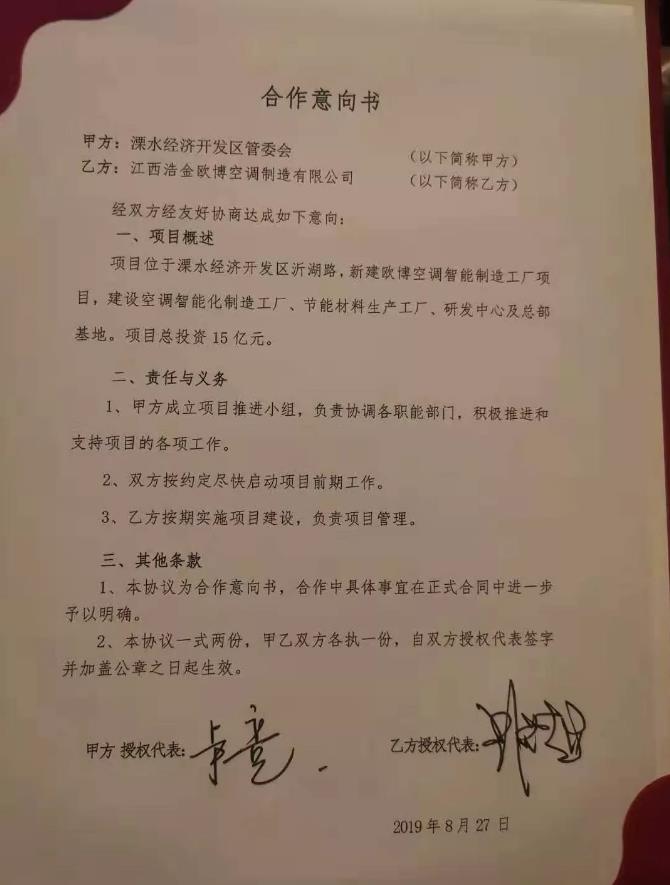 合作意向书
甲方：溧水经济开发区管委会 （以下简称甲方）
乙方：江西浩金欧博空调制造有限公司 （以下简称乙方）
经双方经友好协商达成如下意向：
一、项目概述
项目位于溧水经济开发区沂湖路，新建欧博空调智能制造工厂项
目，建设空调智能化制造工厂、节能材料生产工厂、研发中心及总部
基地。项目总投资 15 亿元。
二、责任与义务
1、甲方成立项目推进小组，负责协调各职能部门，积极推进和
支持项目的各项工作。
2、双方按约定尽快启动项目前期工作。
3、乙方按期实施项目建设，负责项目管理。
三、其他条款
1、本协议为合作意向书，合作中具体事宜在正式合同中进一步
予以明确。
2、本协议一式两份，甲乙双方各执一份，自双方授权代表签字
并加盖公章之日起生效。
甲方 授权代表： 乙方授权代表：
2019 年 8 月 27 日